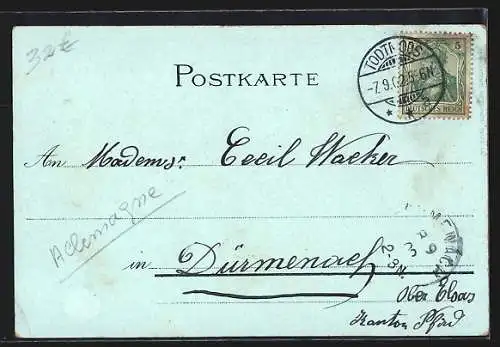 32€
POSTKARTE
TODTMOOS
-7.9.02.5-6N.
5
DEUTSCHES REICH
An Madems. Cecil Wacker
Allemagne
in Dürmenach
Ober Elsas
Kanton Pfird